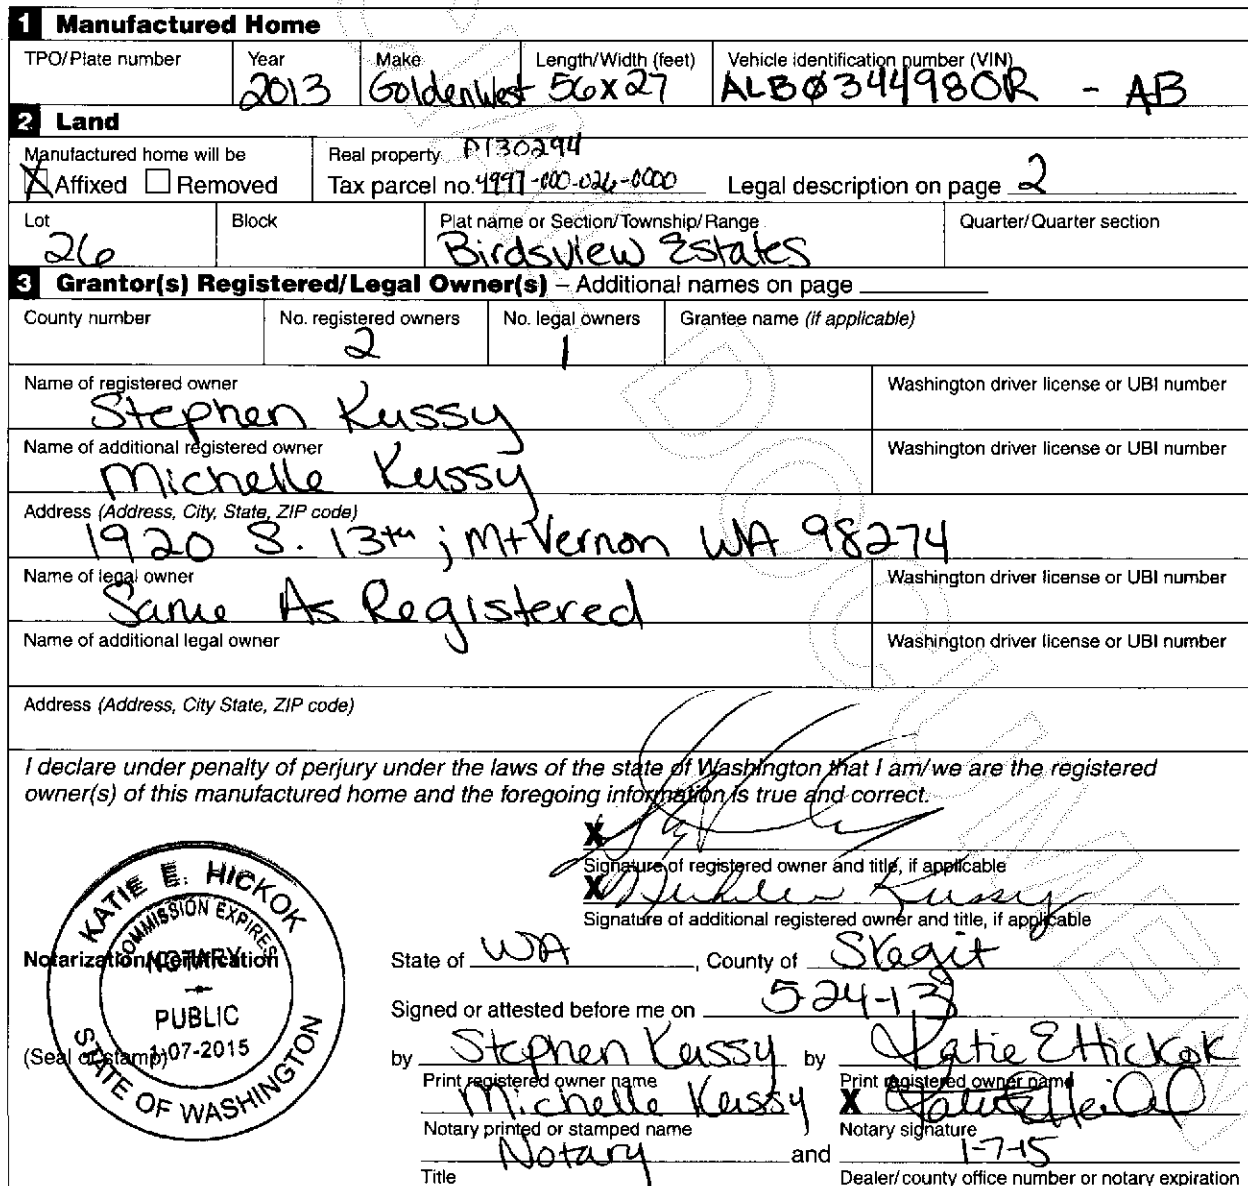 1 Manufactured Home
TPO/Plate number Year Make Length/Width (feet) Vehicle identification number (VIN)
2013 Goldenwest 56x27 ALBØ344980R - AB
2 Land
Manufactured home will be Real property P130294
X Affixed Removed Tax parcel no. 4997-000-026-0000 Legal description on page 2
Lot Block Plat name or Section/Township/Range Quarter/Quarter section
26 Birdsview Estates
3 Grantor(s) Registered/Legal Owner(s) – Additional names on page
County number No. registered owners No. legal owners Grantee name (if applicable)
2 1
Name of registered owner Washington driver license or UBI number
Stephen Kussy
Name of additional registered owner Washington driver license or UBI number
Michelle Kussy
Address (Address, City, State, ZIP code)
1920 S. 13th ; Mt Vernon WA 98274
Name of legal owner Washington driver license or UBI number
Same As Registered
Name of additional legal owner Washington driver license or UBI number
Address (Address, City State, ZIP code)
I declare under penalty of perjury under the laws of the state of Washington that I am/we are the registered
owner(s) of this manufactured home and the foregoing information is true and correct.
X
Signature of registered owner and title, if applicable
X Michelle Kussy
Signature of additional registered owner and title, if applicable
KATIE E. HICKOK
COMMISSION EXPIRES
NOTARY
PUBLIC
1-07-2015
STATE OF WASHINGTON
Notarization/Certification
(Seal or stamp)
State of WA, County of Skagit
Signed or attested before me on 5-24-13
by Stephen Kussy by Katie E Hickok
Print registered owner name Print registered owner name
Michelle Kussy X
Notary printed or stamped name Notary signature
Notary and 1-7-15
Title Dealer/county office number or notary expiration
DOCUMENT